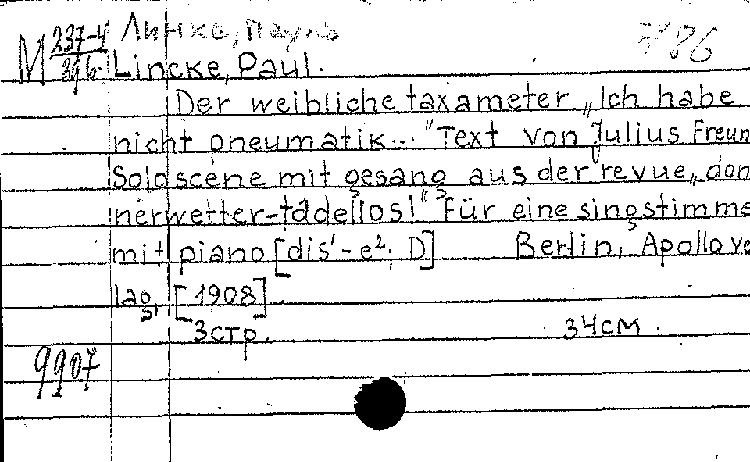 Линке, Пауль
M 237-4
Lincke, Paul.
Der weibliche taxameter „Ich habe
nicht pneumatik..." Text von Julius Freun
Soloscene mit gesang aus der revue „don
nerwetter-tadellos!" Für eine singstimme
mit piano [dis¹-e²; D] Berlin, Apollo ve
lag, [1908]
3стр. 34см.
9907